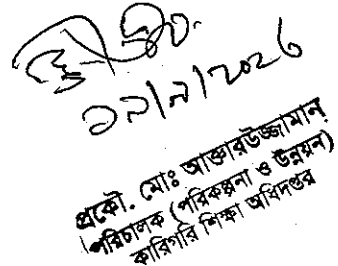 প্রকৌ. মোঃ আক্তারউজ্জামান
পরিচালক (পরিকল্পনা ও উন্নয়ন)
কারিগরি শিক্ষা অধিদপ্তর